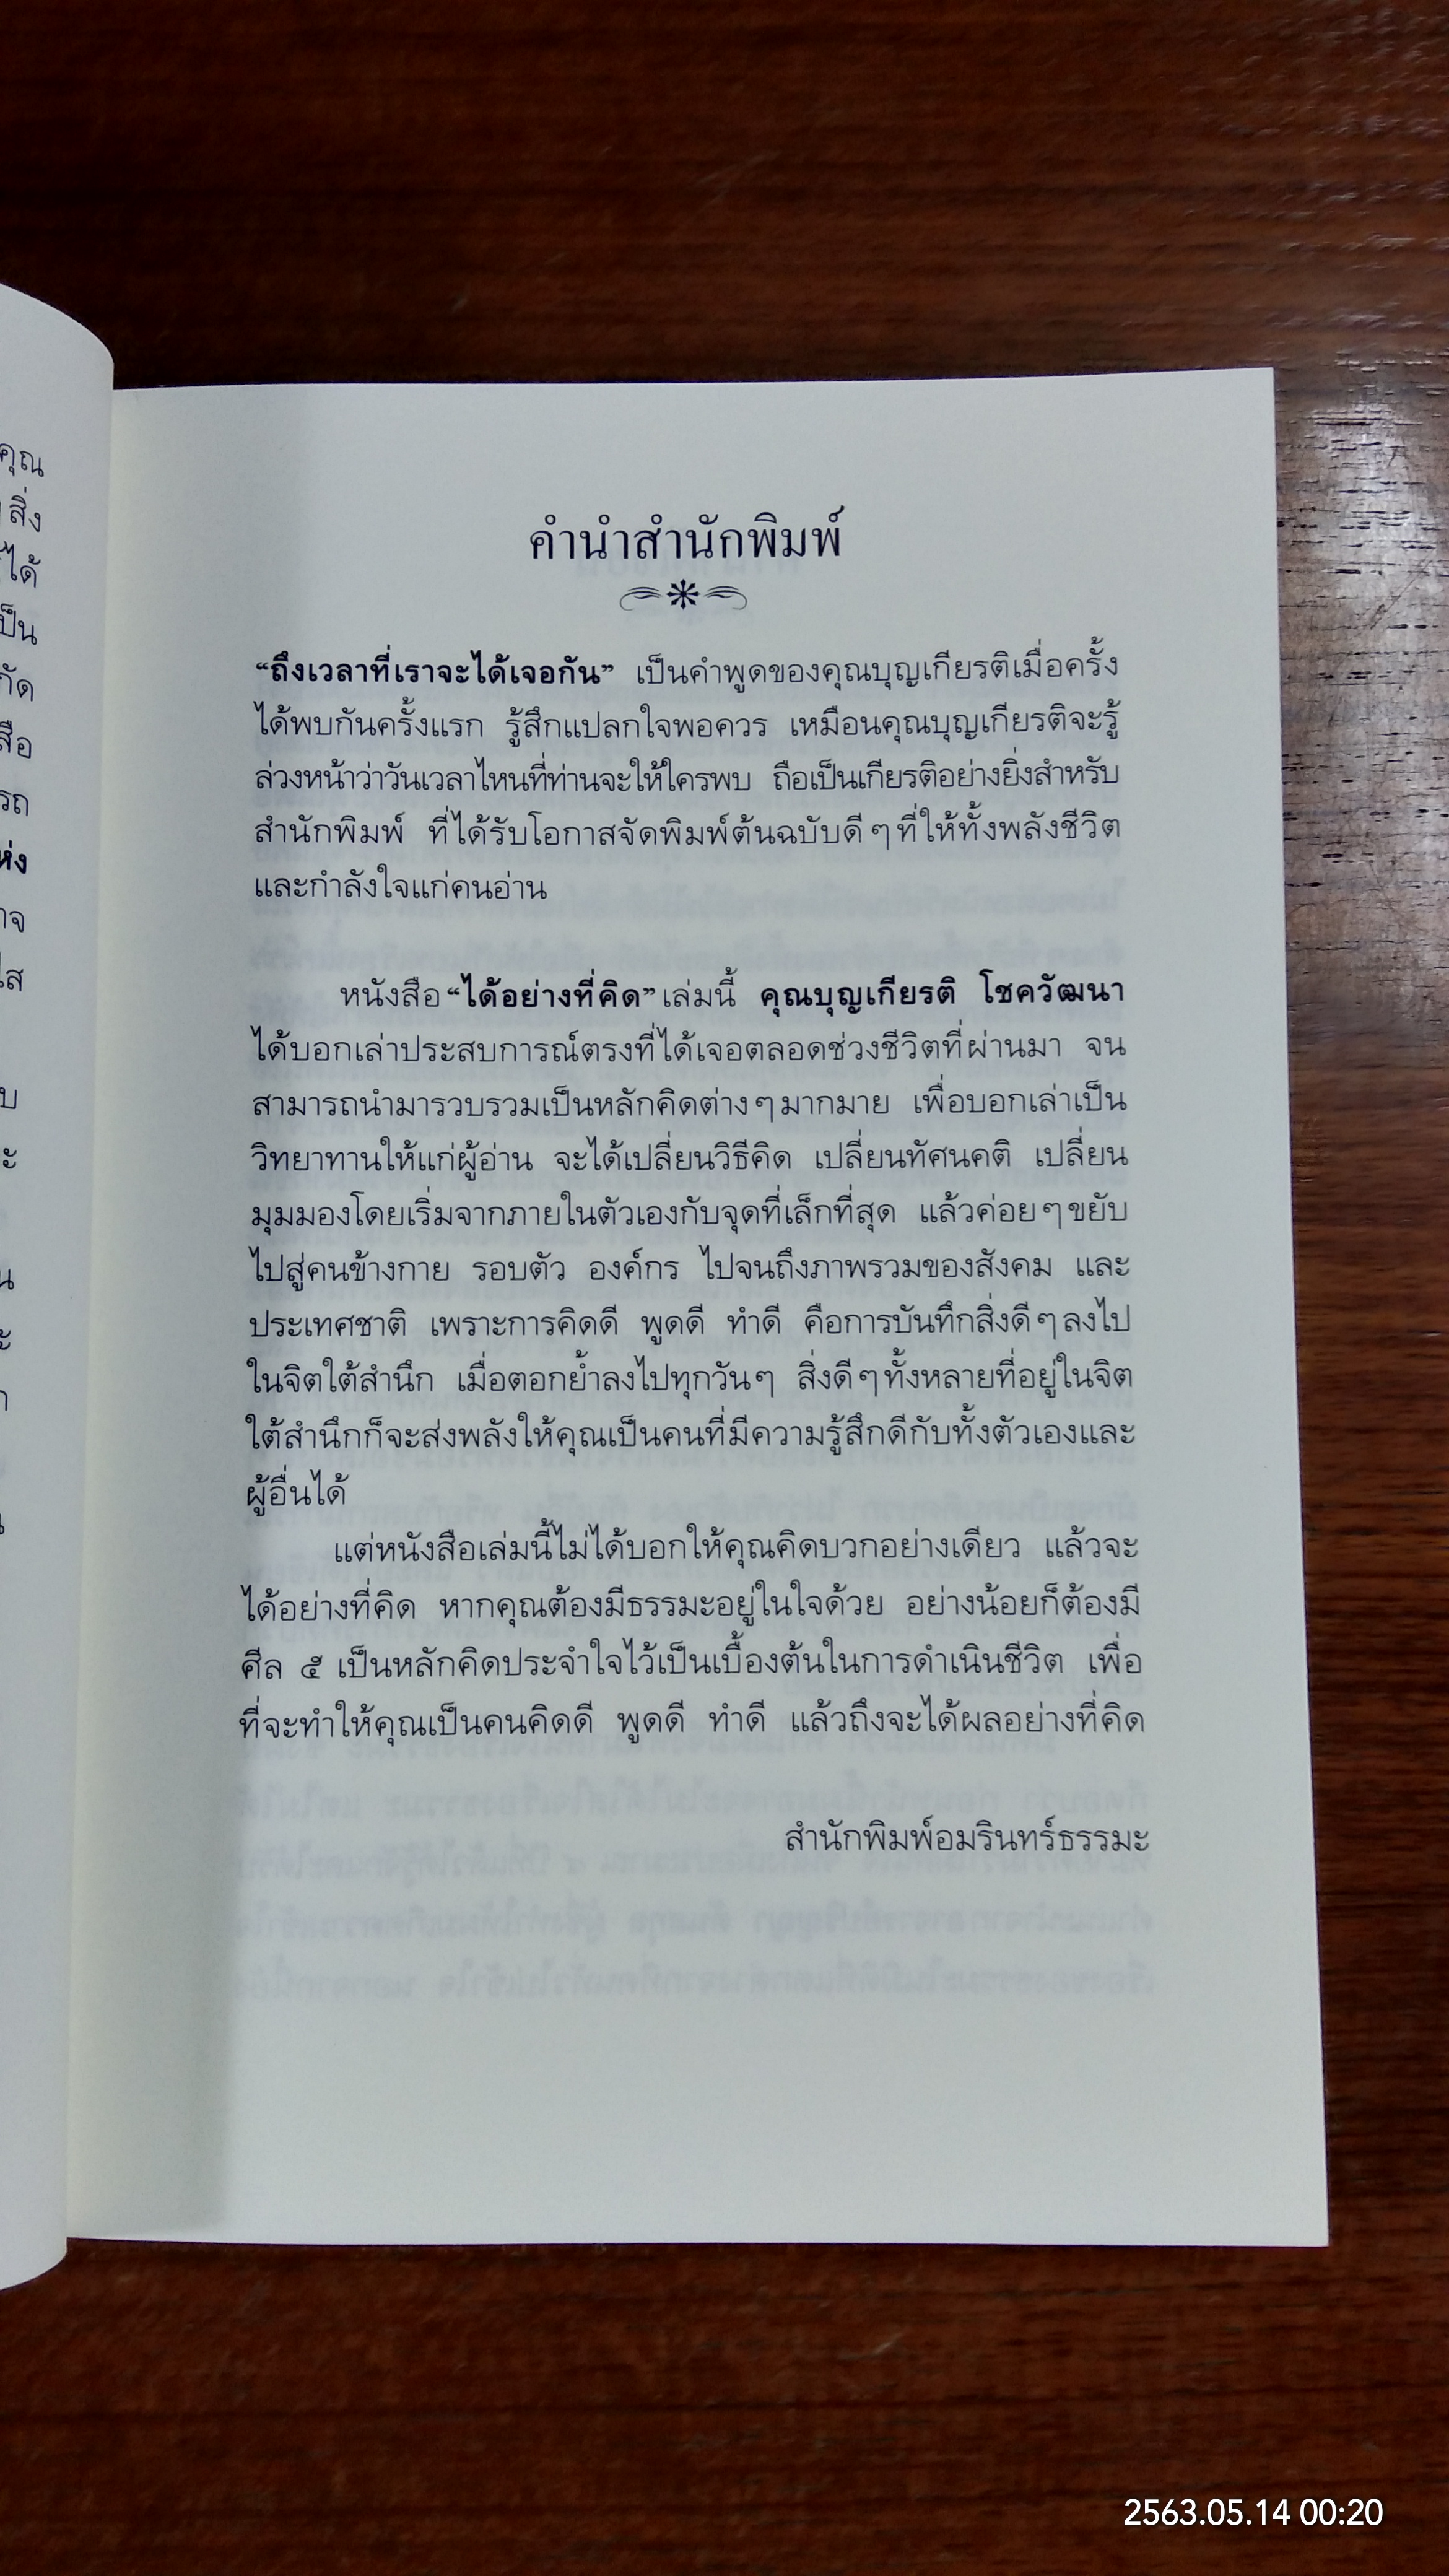 คุณ
สิ่ง
ได้
กัด
สือ
รถ
คำนำสำนักพิมพ์
“ถึงเวลาที่เราจะได้เจอกัน” เป็นคำพูดของคุณบุญเกียรติเมื่อครั้ง
ได้พบกันครั้งแรก รู้สึกแปลกใจพอควร เหมือนคุณบุญเกียรติจะรู้
ล่วงหน้าว่าวันเวลาไหนที่ท่านจะให้ใครพบ ถือเป็นเกียรติอย่างยิ่งสำหรับ
สำนักพิมพ์ ที่ได้รับโอกาสจัดพิมพ์ต้นฉบับดีๆที่ให้ทั้งพลังชีวิต
และกำลังใจแก่คนอ่าน
หนังสือ“ได้อย่างที่คิด”เล่มนี้ คุณบุญเกียรติ โชควัฒนา
ได้บอกเล่าประสบการณ์ตรงที่ได้เจอตลอดช่วงชีวิตที่ผ่านมา จน
สามารถนำมารวบรวมเป็นหลักคิดต่างๆมากมาย เพื่อบอกเล่าเป็น
วิทยาทานให้แก่ผู้อ่าน จะได้เปลี่ยนวิธีคิด เปลี่ยนทัศนคติ เปลี่ยน
มุมมองโดยเริ่มจากภายในตัวเองกับจุดที่เล็กที่สุด แล้วค่อยๆขยับ
ไปสู่คนข้างกาย รอบตัว องค์กร ไปจนถึงภาพรวมของสังคม และ
ประเทศชาติ เพราะการคิดดี พูดดี ทำดี คือการบันทึกสิ่งดีๆลงไป
ในจิตใต้สำนึก เมื่อตอกย้ำลงไปทุกวันๆ สิ่งดีๆทั้งหลายที่อยู่ในจิต
ใต้สำนึกก็จะส่งพลังให้คุณเป็นคนที่มีความรู้สึกดีกับทั้งตัวเองและ
ผู้อื่นได้
แต่หนังสือเล่มนี้ไม่ได้บอกให้คุณคิดบวกอย่างเดียว แล้วจะ
ได้อย่างที่คิด หากคุณต้องมีธรรมะอยู่ในใจด้วย อย่างน้อยก็ต้องมี
ศีล ๕ เป็นหลักคิดประจำใจไว้เป็นเบื้องต้นในการดำเนินชีวิต เพื่อ
ที่จะทำให้คุณเป็นคนคิดดี พูดดี ทำดี แล้วถึงจะได้ผลอย่างที่คิด
สำนักพิมพ์อมรินทร์ธรรมะ
2563.05.14 00:20